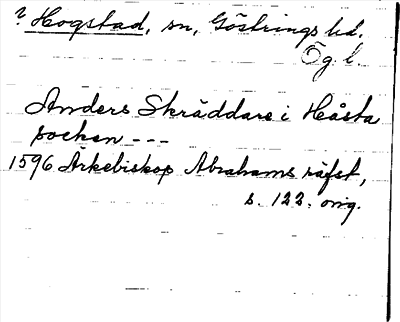 ? Hogstad, sn, Göstrings hd.
Ög. l.
Anders Skräddare i Håsta
socken ---
1596 Ärkebiskop Abrahams räfst,
s. 122. orig.